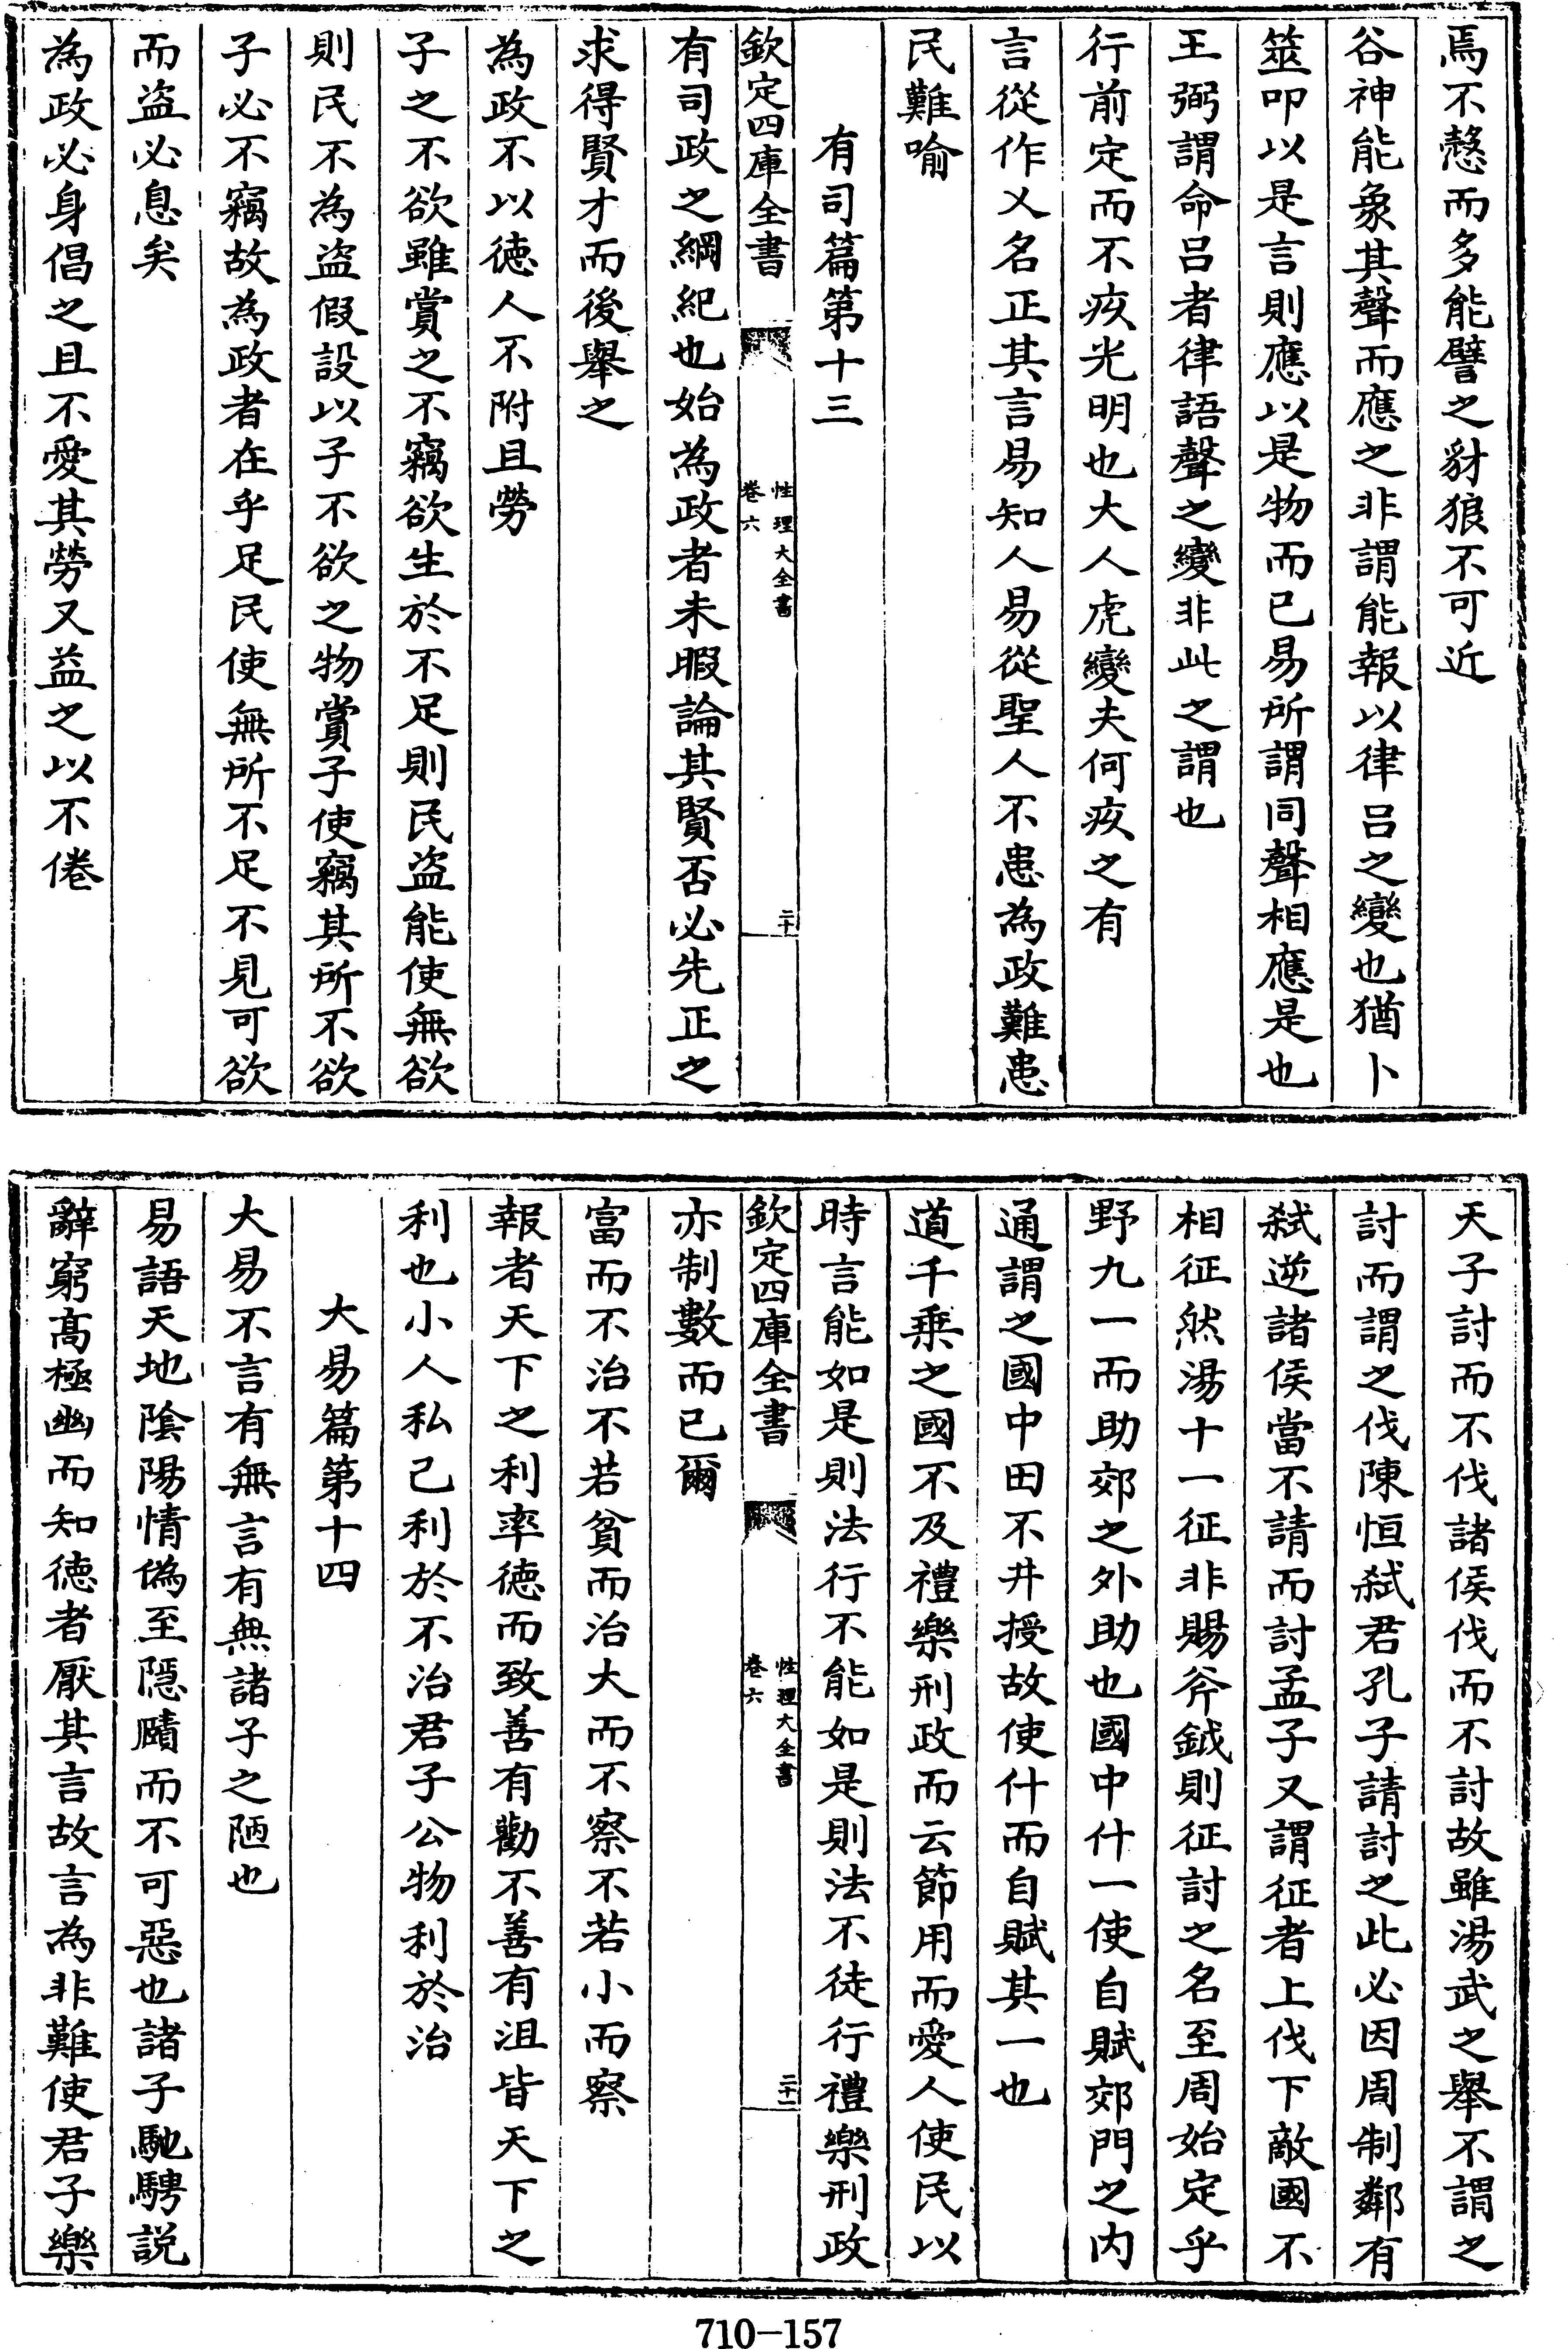 焉不慤而多能譬之豺狼不可近
谷神能象其聲而應之非謂能報以律呂之變也猶卜
筮叩以是言則應以是物而已易所謂同聲相應是也
王弼謂命呂者律語聲之變非此之謂也
行前定而不疚光明也大人虎變夫何疚之有
言從作乂名正其言易知人易從聖人不患為政難患
民難喻
有司篇第十三
欽定四庫全書
性理大全書
卷六
二十
有司政之綱紀也始為政者未暇論其賢否必先正之
求得賢才而後舉之
為政不以徳人不附且勞
子之不欲雖賞之不竊欲生於不足則民盜能使無欲
則民不為盜假設以子不欲之物賞子使竊其所不欲
子必不竊故為政者在乎足民使無所不足不見可欲
而盜必息矣
為政必身倡之且不愛其勞又益之以不倦
天子討而不伐諸侯伐而不討故雖湯武之舉不謂之
討而謂之伐陳恒弑君孔子請討之此必因周制鄰有
弑逆諸侯當不請而討孟子又謂征者上伐下敵國不
相征然湯十一征非賜斧鉞則征討之名至周始定乎
野九一而助郊之外助也國中什一使自賦郊門之内
通謂之國中田不井授故使什而自賦其一也
道千乗之國不及禮樂刑政而云節用而愛人使民以
時言能如是則法行不能如是則法不徒行禮樂刑政
欽定四庫全書
性理大全書
卷六
二十一
亦制數而已爾
富而不治不若貧而治大而不察不若小而察
報者天下之利率徳而致善有勸不善有沮皆天下之
利也小人私己利於不治君子公物利於治
大易篇第十四
大易不言有無言有無諸子之陋也
易語天地陰陽情偽至隠賾而不可惡也諸子馳騁説
辭窮髙極幽而知徳者厭其言故言為非難使君子樂
710-157